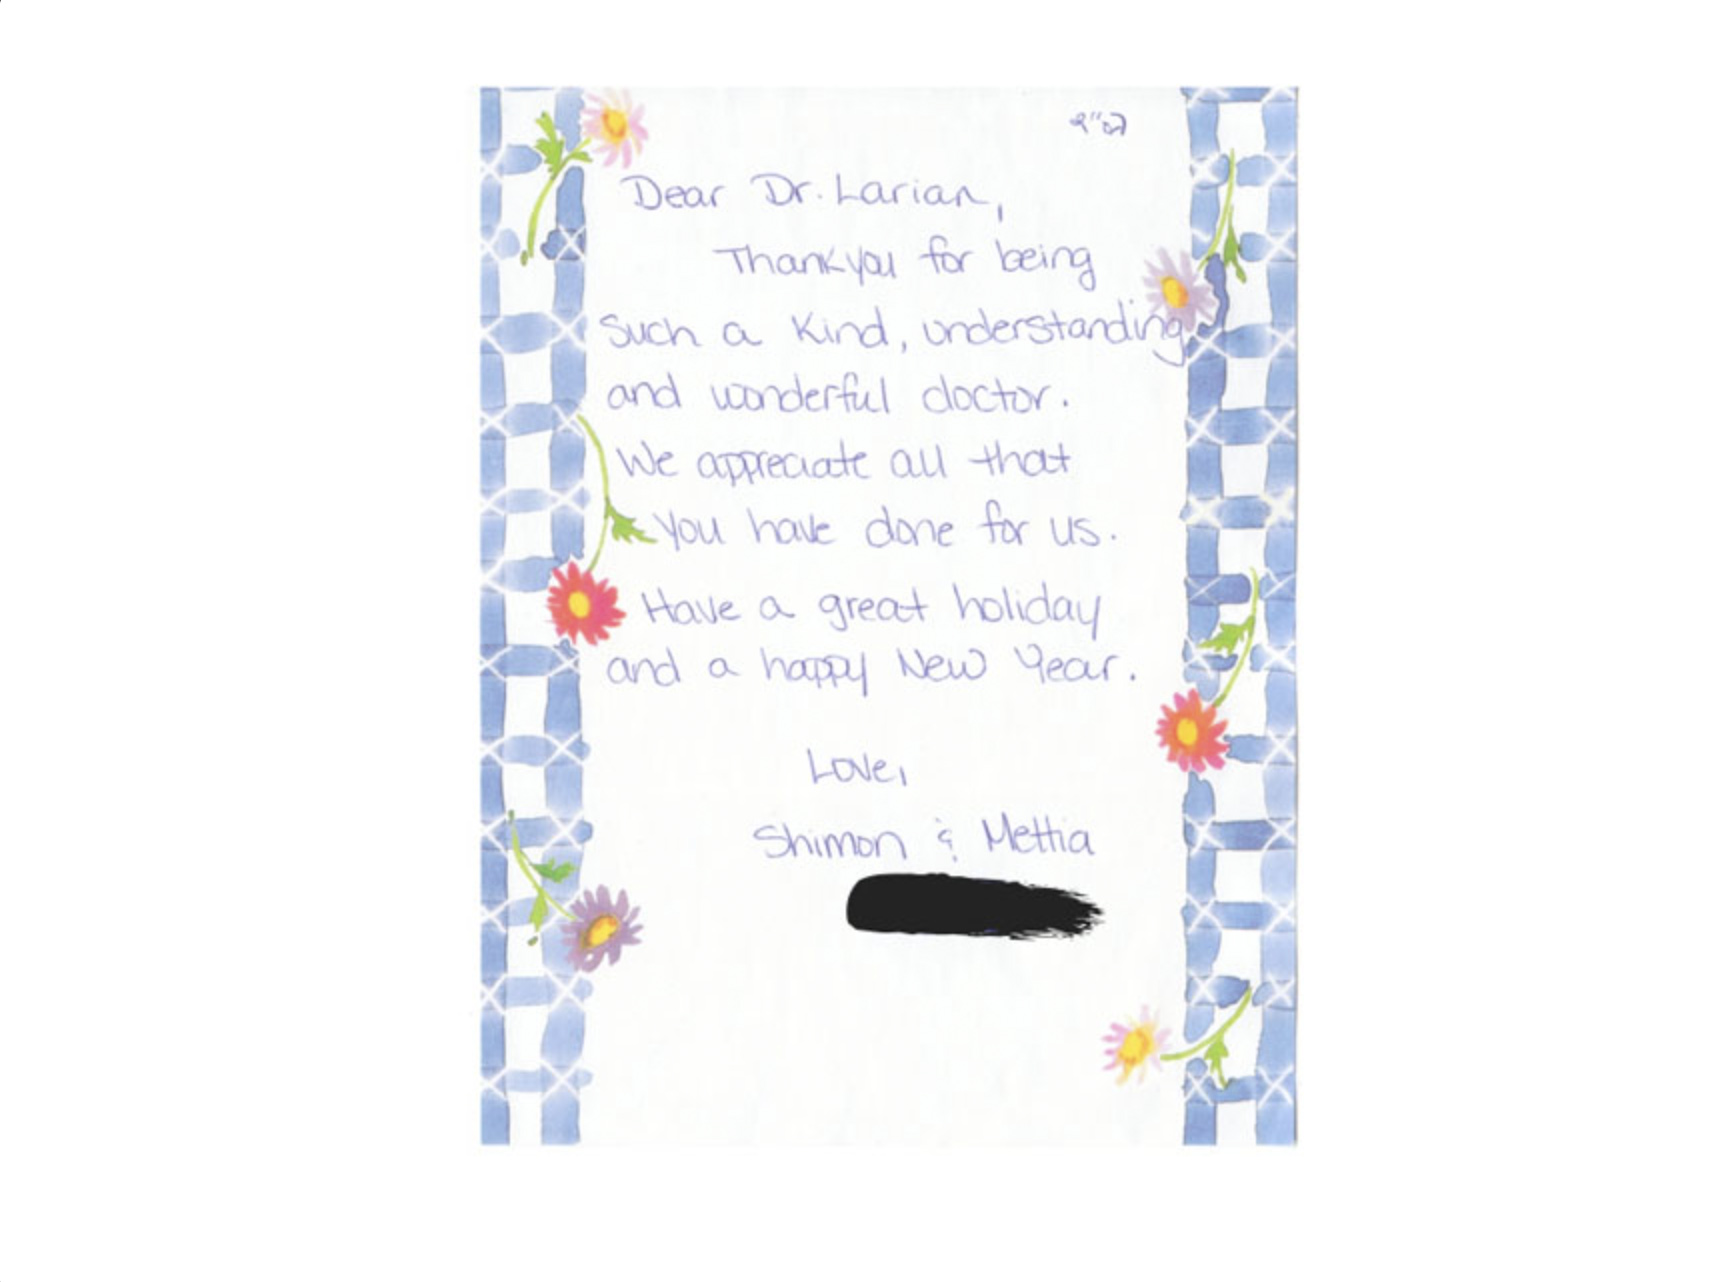 בס"ד
Dear Dr. Larian,
Thankyou for being
Such a Kind, understanding
and wonderful doctor.
We appreciate all that
you have done for us.
Have a great holiday
and a happy New Year.
Love,
Shimon & Mettia